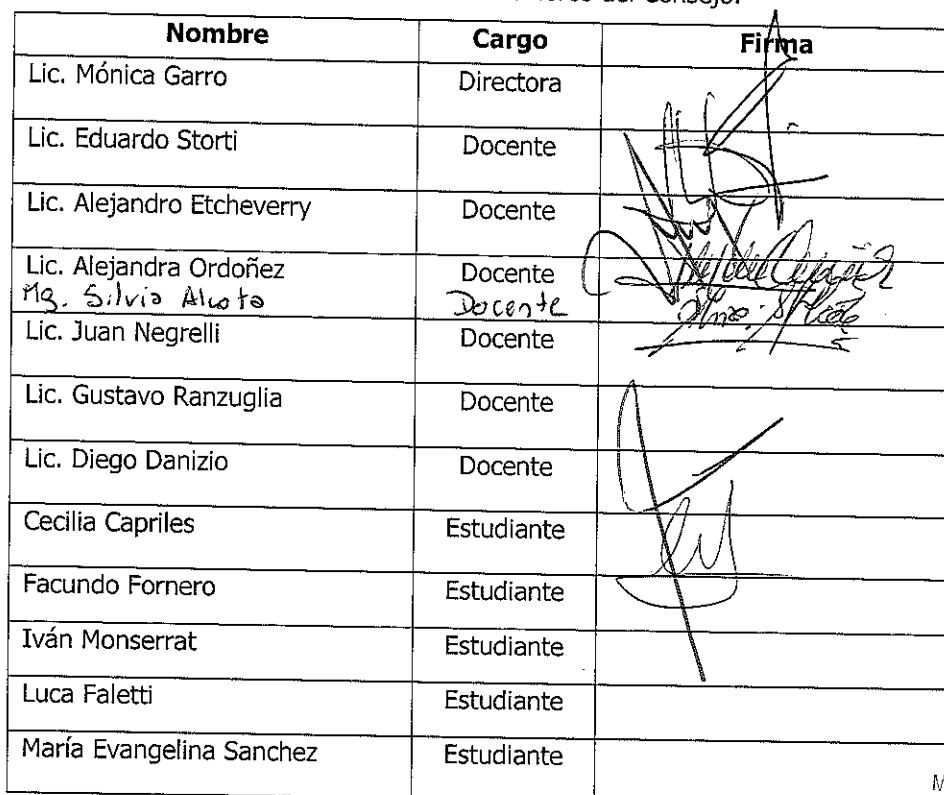 del Consejo.
Nombre Cargo Firma
Lic. Mónica Garro Directora
Lic. Eduardo Storti Docente
Lic. Alejandro Etcheverry Docente
Lic. Alejandra Ordoñez Docente
Mg. Silvia Docente
Lic. Juan Negrelli Docente
Lic. Gustavo Ranzuglia Docente
Lic. Diego Danizio Docente
Cecilia Capriles Estudiante
Facundo Fornero Estudiante
Iván Monserrat Estudiante
Luca Faletti Estudiante
María Evangelina Sanchez Estudiante
M